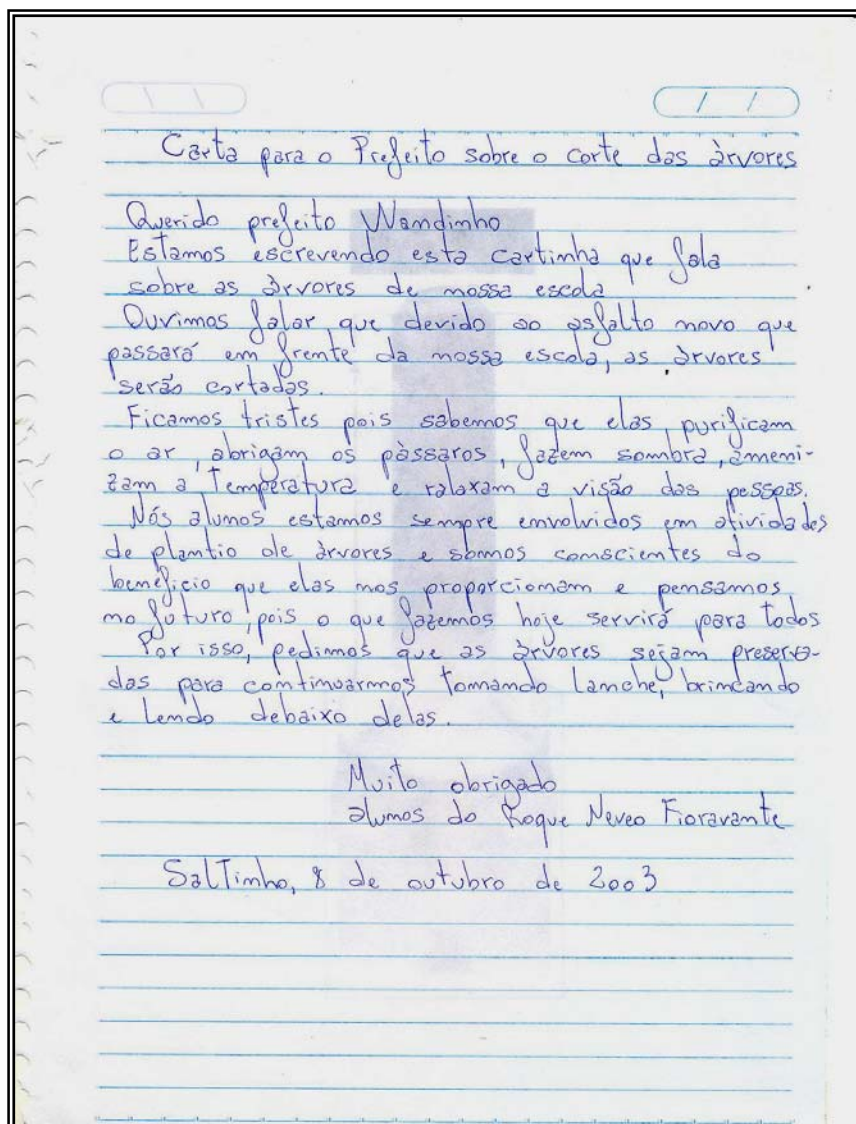 / /
Carta para o Prefeito sobre o corte das àrvores
Querido prefeito Wandinho
Estamos escrevendo esta cartinha que fala
sobre as àrvores de nossa escola
Ouvimos falar, que devido ao asfalto novo que
passará em frente da nossa escola, as àrvores
serão cortadas.
Ficamos tristes pois sabemos que elas, purificam
o ar, abrigam os pàssaros, fazem sombra, ameni-
zam a temperatura e ralaxam a visão das pessoas.
Nós alunos estamos sempre envolvidos em atividades
de plantio de àrvores e somos conscientes do
beneficio que elas nos proporcionam e pensamos
no futuro, pois o que fazemos hoje servirá para todos
Por isso, pedimos que as àrvores sejam preserva-
das para continuarmos tomando lanche, brincando
e lendo debaixo delas.
Muito obrigado
alunos do Roque Neveo Fioravante
Saltinho, 8 de outubro de 2003